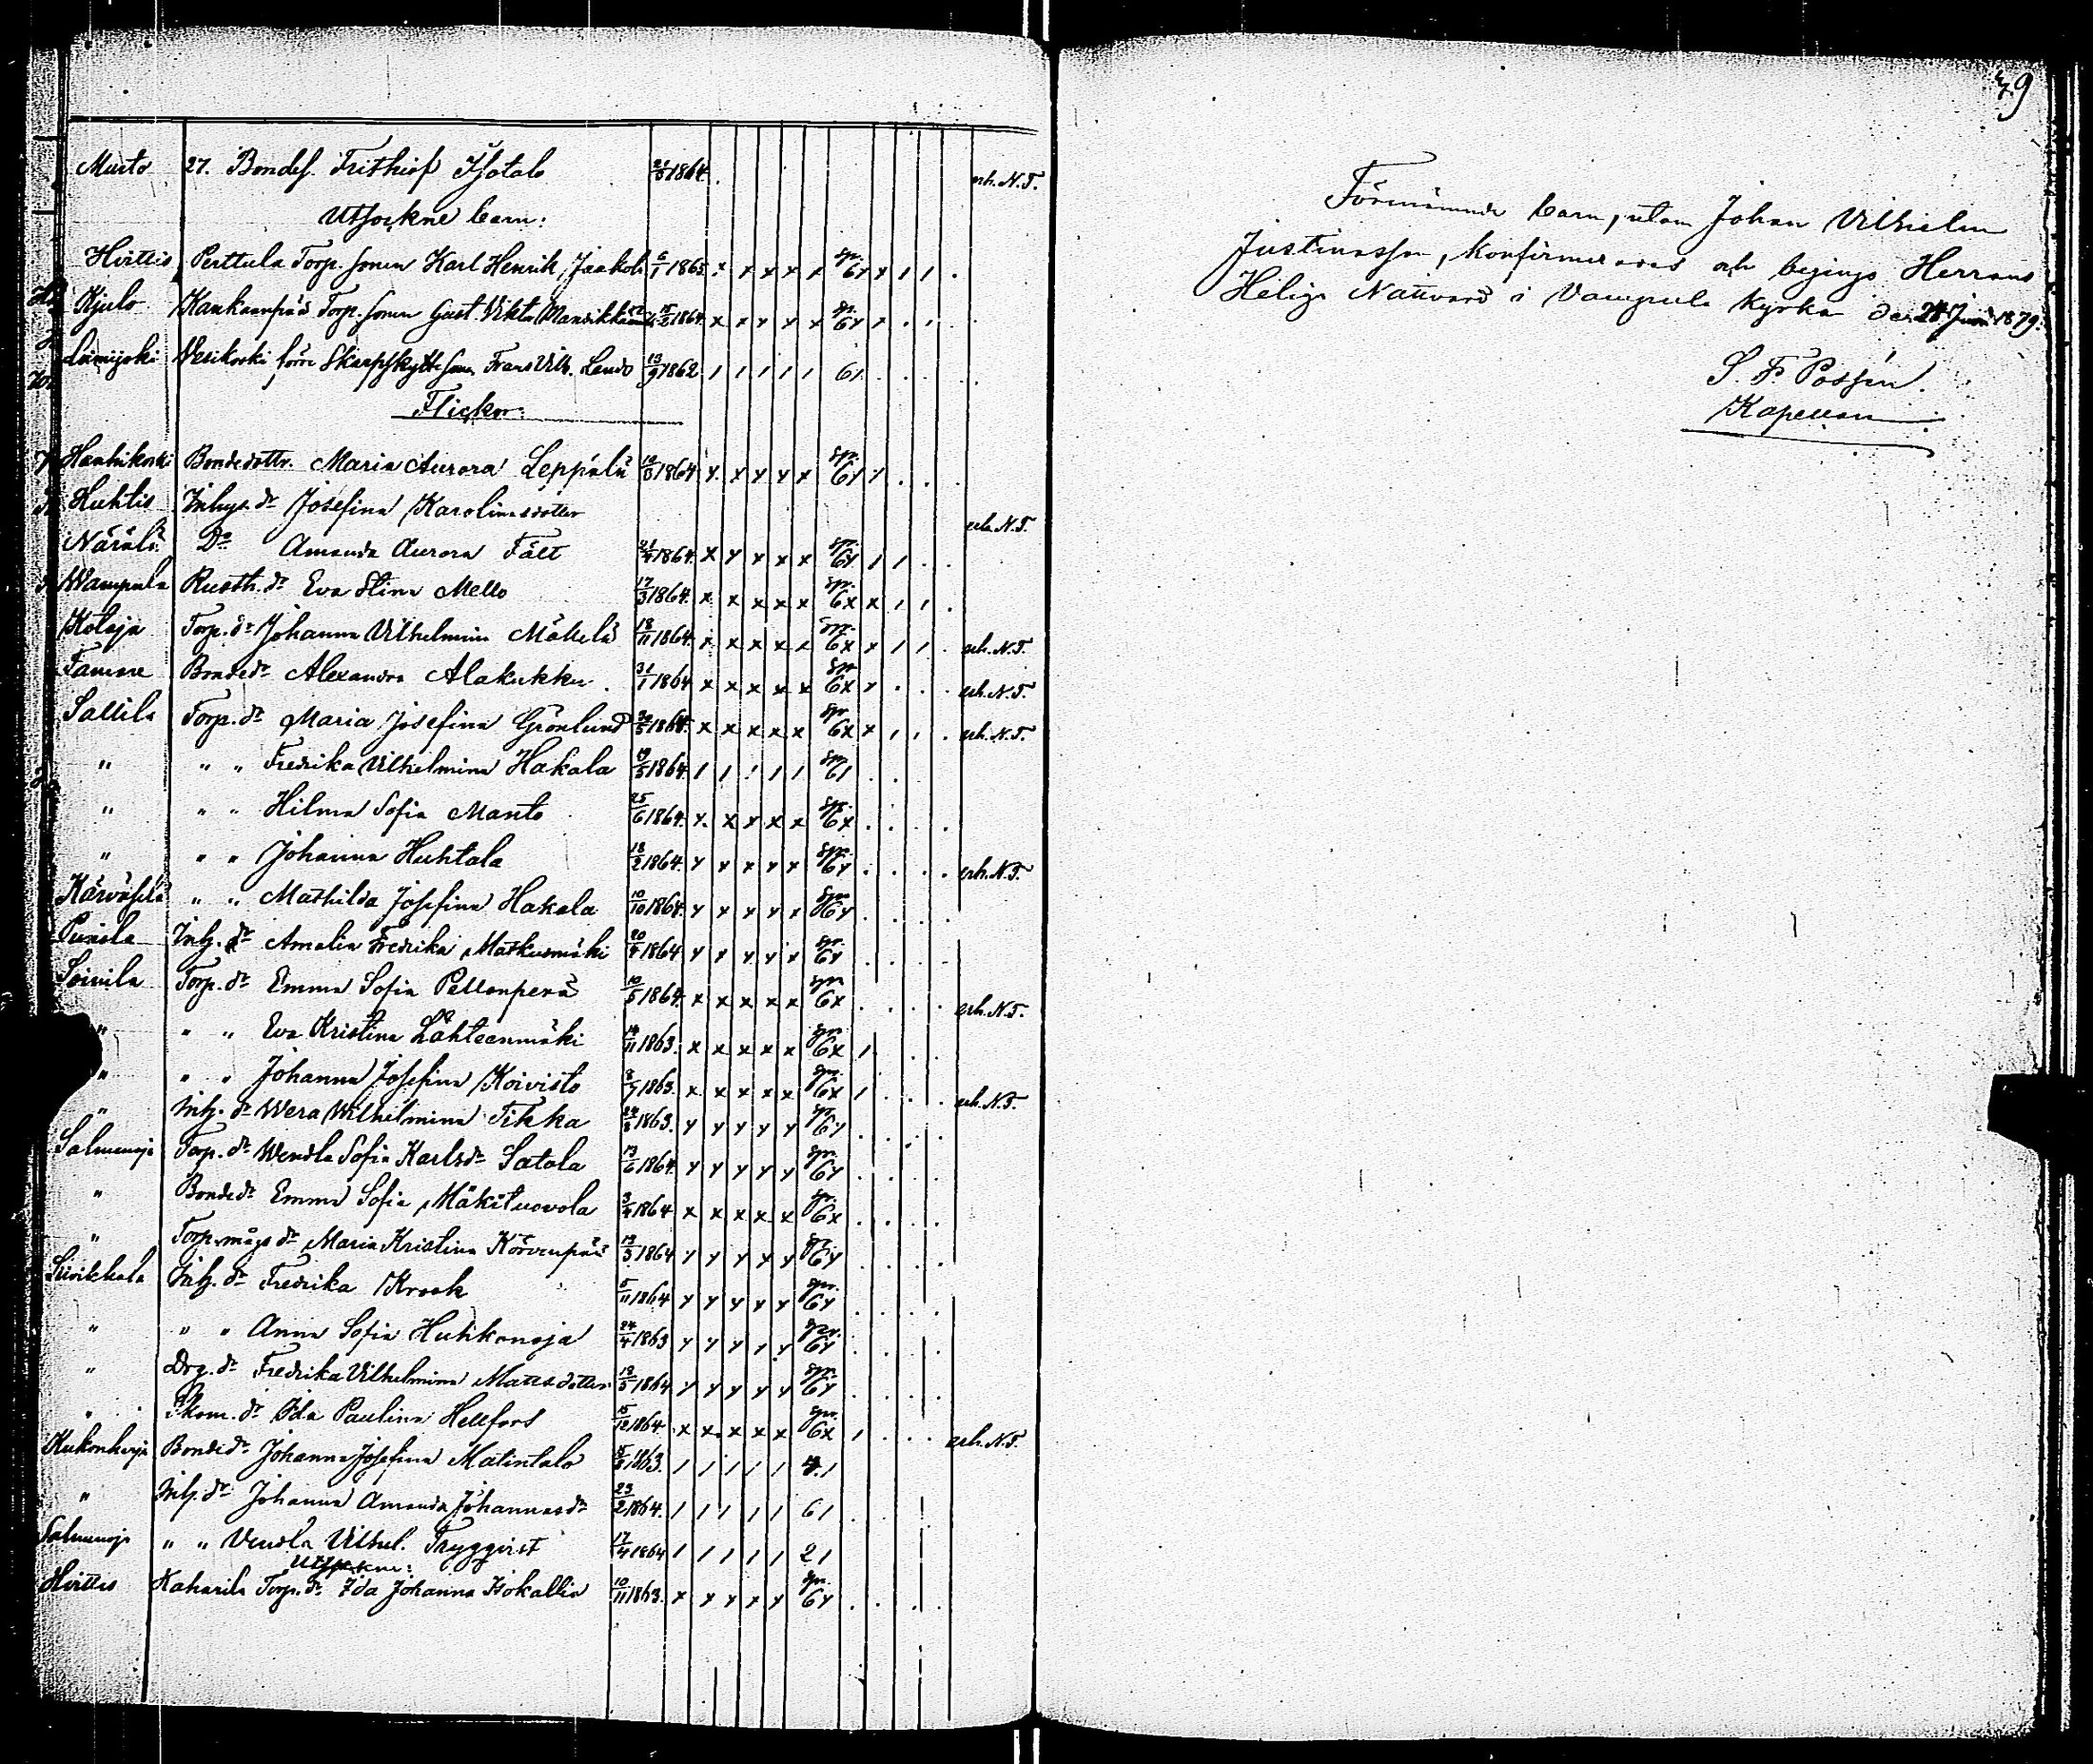 Murto 27. Bondes. Frithiof Isotalo 2/5 1864. erh. N.T.
Utsockne barn:
Hvittis Perttula Torp. sonen Karl Henrik Jaakola 6/1 1865. x x x x x spr. 6x x 1 1 .
Kjulo Kankaanpää Torp. sonen Gust. Vikt. 1864. x x y y x spr. 6y x . .
Loimijoki Vesikoski förre Skarpskytte sonen Frans Vilh. Lando 13/9 1862 1 1 1 1 1 61 . . .
Flickor:
Haahikoski Bondedottr. Maria Aurora Leppälä 1864 y x y y x spr. 6y 1 . .
Huhtis Inhys. dr Josefina Karolinasdotter erh. N.T.
Närälä Do Amanda Aurora Fält 21/4 1864. x y x x x spr. 6y 1 1 . .
Wampula Rusth. dr Eva Stina Mello 17/3 1864. x x x x x spr. 6x x 1 1 .
Kotaja Torp. dr Johanna Vilhelmina Mälkelä 18/11 1864. x x x x x spr. 6x x 1 1 . erh. N.T.
Tamare Bondedr Alexandra Alakukku 31/1 1864 x x x x x spr 6x x . . . erh. N.T.
Sallila Torp. dr Maria Josefina Grönlund 1864. x x x x x spr 6x x 1 1 . erh. N.T.
" " " Fredrika Vilhelmina Hakala 19/5 1864. 1 1 1 1 1 spr 61 . .
" " " Hilma Sofia Manto 25/6 1864. y. x y x x spr. 6x . . . .
" " " Johanna Huhtala 18/2 1864. y y y y x spr. 6y . . . . erh. N.T.
Kärväselä " " Mathilda Josefina Hakala 10/10 1864. y y y y x spr. 6y . . . .
Punola Inh. dr Amalia Fredrika Markusmäki 20/4 1864 y y y y x spr. 6y . . . .
Soinila Torp. dr Emma Sofia Peltonperä 10/5 1864. x x x x x spr 6x . . . . erh. N.T.
" " " Eva Kristina Lähteenmäki 14/11 1863. x x x x x spr. 6x 1 . .
" " " Johanna Josefina Koivisto 8/7 1863. x x x x x spr. 6x 1 . . . erh. N.T.
" Inh. dr Wera Wilhelmina Tikka 1863. y y y y y spr. 6y . . . .
Salmenoja Torp. dr Wendla Sofia Karlsdr Satola 13/6 1864. y y y y y spr. 6y . . . .
" Bondedr Emma Sofia Mäkituovola 3/4 1864 x x x x x spr. 6x . . . .
" Torp. mågs dr Maria Kristina Körvenpää 13/3 1864 y y y y y spr. 6y . . . .
Liivikkala Inh. dr Fredrika Krook 5/11 1864 y y y y y spr. 6y . . . .
" " " Anna Sofia Huhkonoja 24/4 1863 y y y y y spr. 6y . . . .
" Drg. dr Fredrika Vilhelmina Mattsdotter 13/5 1864 y y y y y spr. 6y . . . .
" Skom. dr Ida Paulina Hellfors 15/12 1864. x x x x x spr. 6x 1 . . . erh. N.T.
Kukonharja Bondedr Johanna Josefina Matintalo 1863. 1 1 1 1 1
" Inh. dr Johanna Amanda Johannesdr 23/2 1864. 1 1 1 1 1 61 . .
Salmenoja " " Vendla Vilhel. Tryggvist 17/4 1864 1 1 1 1 1 21
Utsockne:
Hvittis Kaharila Torp. dr Ida Johanna Isokallio 10/11 1863. x x y x y spr. 6y . . . .
49
Förenämnde barn, utom Johan Vilhelm
Justinasson, konfirmerades och begingo Herrans
Heliga Nattvard i Vampula kyrka den 24 Juni 1879.
S. F. Possén.
Kapellan